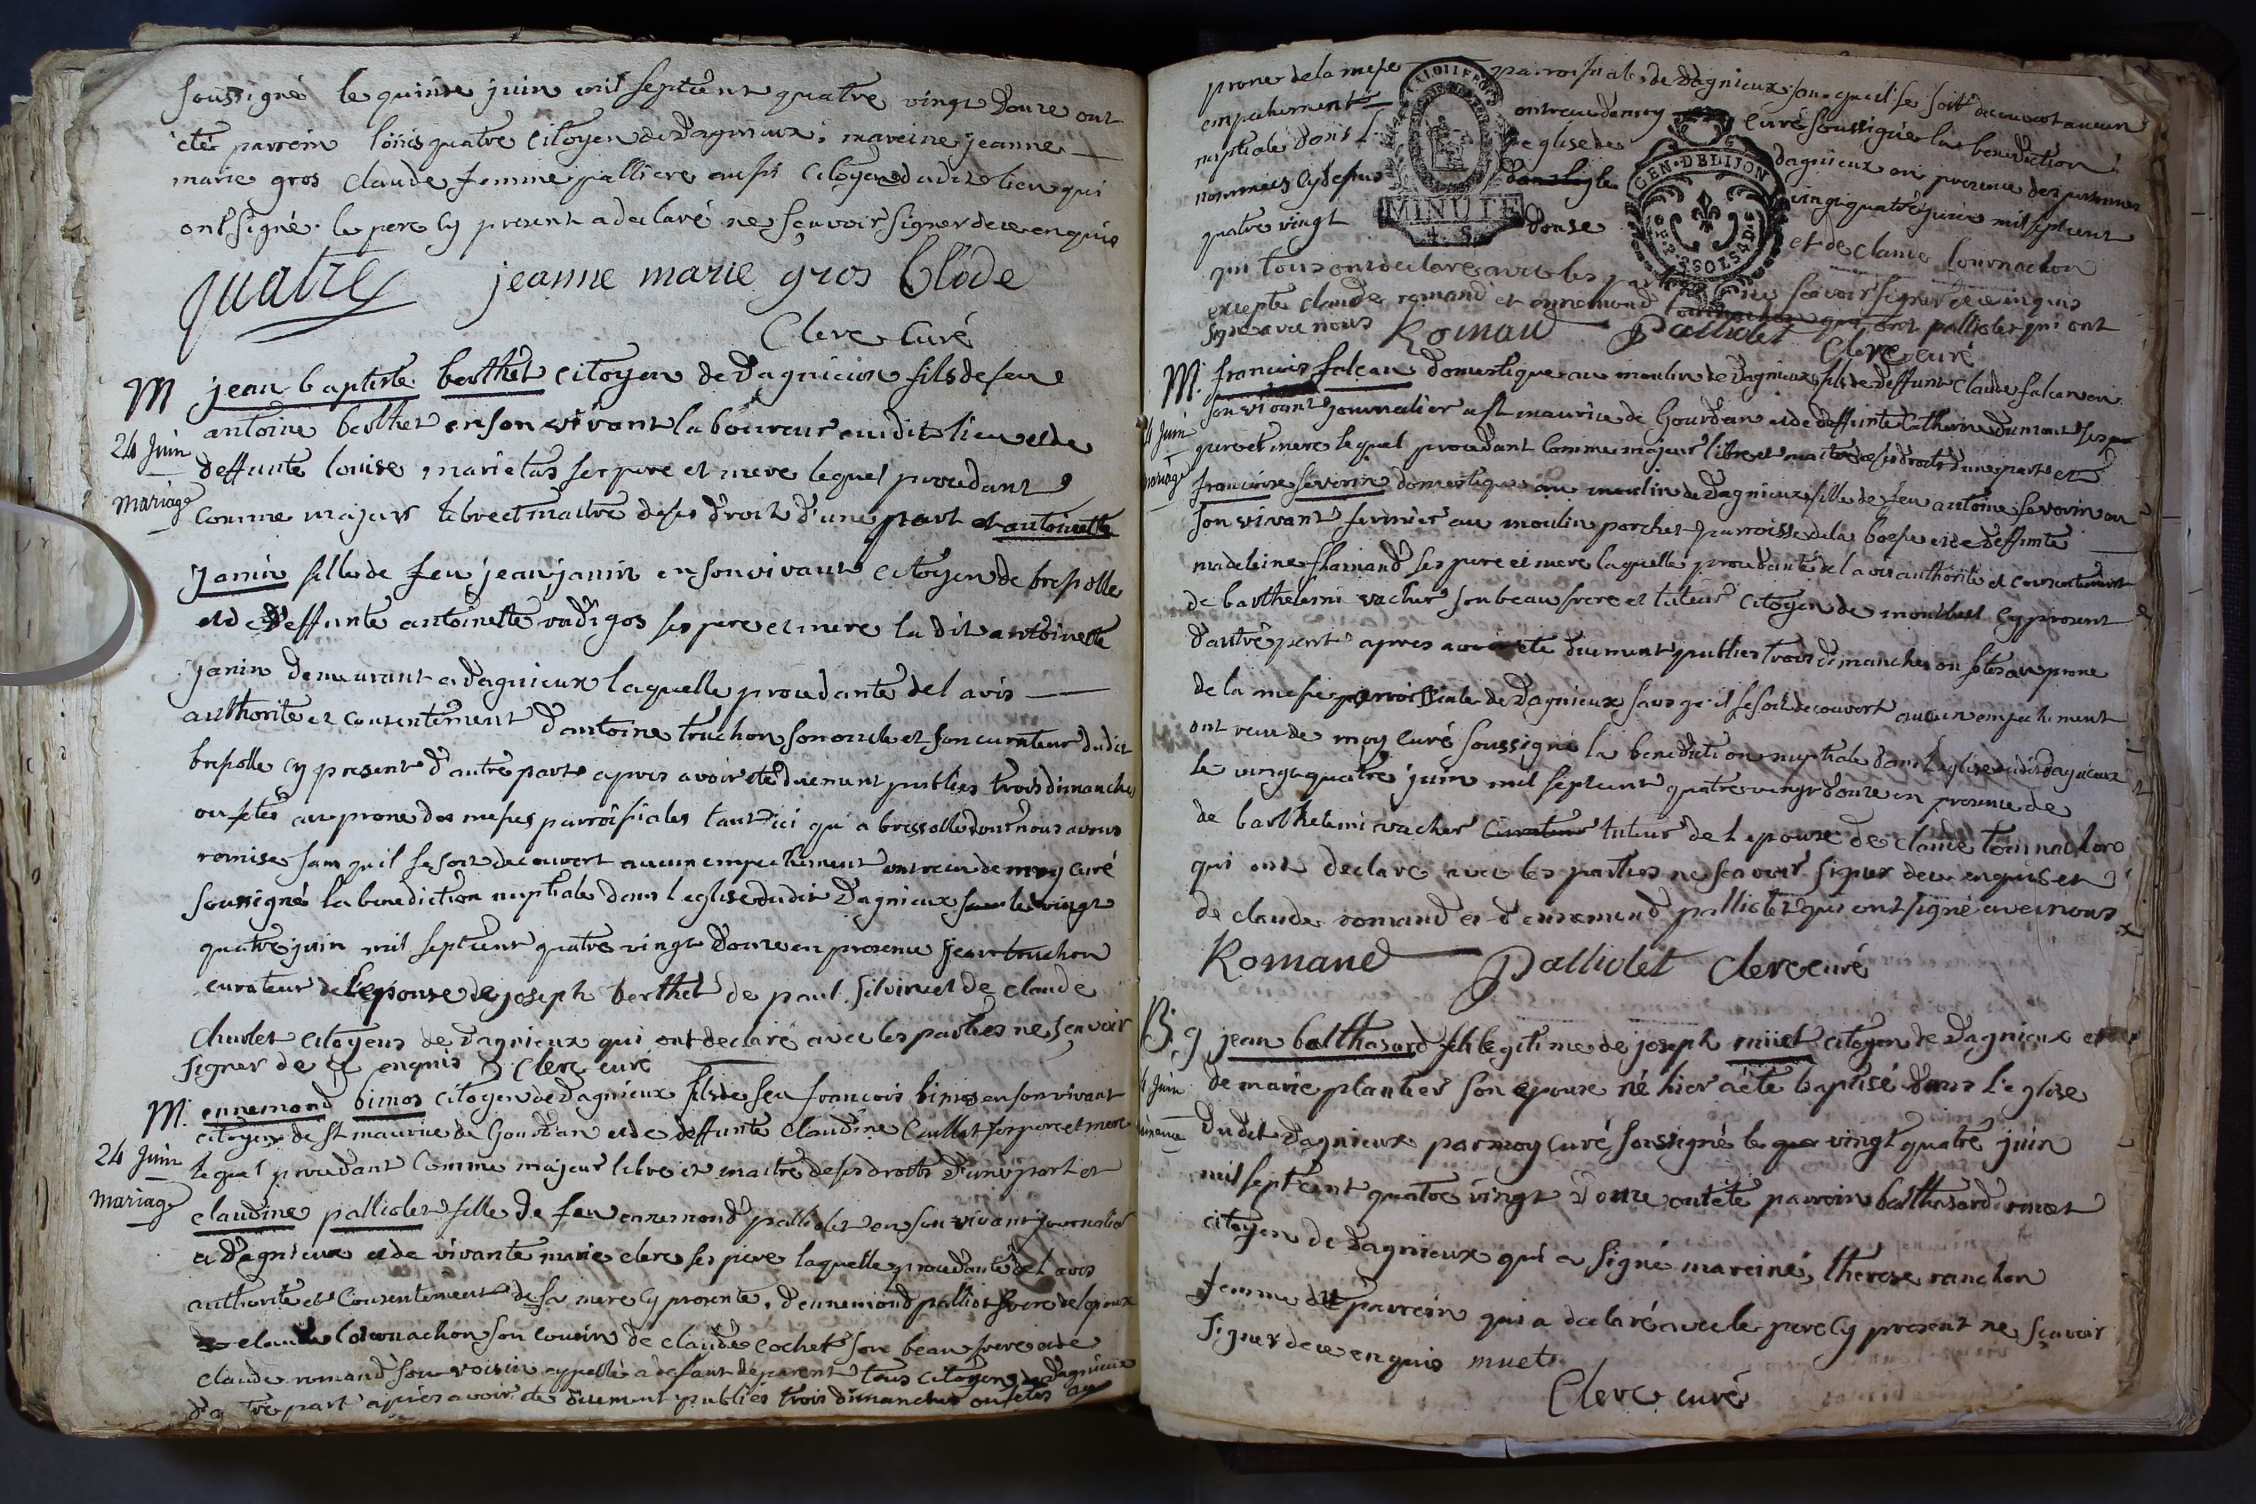 soussigné le quinze juin mil sept cent quatre vingt douze ont
été parrein loüis quatre citoyen de Dagnieux, mareine jeanne
marie gros claude femme palliere aussi citoyen dudit lieu qui
ont signé. le pere cy present a declaré ne sçavoir signer de ce enquis
quatre jeanne marie gros Clode
Clerc Curé
M jean baptiste berthet citoyen de Dagnieux fils de feu
antoine berthet en son vivant laboureur audit lieu et de
24 Juin
deffunte louise marietas ses pere et mere lequel procedant
mariage
comme majeur libre et maitre de ses droits d'une part et antoinette
janin fille de feu jean janin en son vivant citoyen de bressolle
et de deffunte antoinette vadigos ses pere et mere la dit antoinette
janin demeurant a dagnieux laquelle procedante de l avis
authorité et consentement d'antoine truchon son oncle et son curateur dudit
bressolle cy present d'autre part apres avoir eté duement publiés trois dimanches
ou fetes au prone des messes parroissiales tant ici qu'a bressolle dont nous avons
remise sans qu'il se soit decouvert aucun empechement ont receu de moy curé
soussigné la benediction nuptiale dans l eglise dudit Dagnieux le vingt
quatre juin mil sept cent quatre vingt douze en presence jean truchon
curateur de l'epouse de joseph berthet de paul silvin et de claude
Chuolet citoyens de Dagnieux qui ont declaré avec les parties ne sçavoir
signer de ce enquis Clerc curé
M. ennemond bimos citoyen de Dagnieux fils de feu francois bimos en son vivant
citoyen de St maurice de Gourdan et de deffunte Claudine Caillat ses pere et mere
24 Juin
lequel procedant comme majeur libre et maitre de ses droits d'une part et
mariage
claudine palliolet fille de feu ennemond palliolet en son vivant journalier
a Dagnieux et de vivante marie clerc ses pere laquelle procedante de l avis
authorité et consentement de sa mere cy presente, d'ennemond palliot frere de lepouse
de claude tournachon son cousin de claude cochet son beau frere et de
claude romand son voisin appellé a defaut de parent tous citoyens de Dagnieux
d'autre part apres avoir eté duement publiés trois dimanches ou fetes au
prone de la messe parroissiale de Dagnieux sans qu'il se soit decouvert aucun
empechement ont receu de moy curé soussigné la benediction
nuptiale dans l eglise de dagnieux en presence des personnes
nommées cy dessus vingt quatre juin mil sept cent
quatre vingt douze et de claude tournachon
MINUTE
4. S.
GEN. DE LIJON
qui tous ont declaré avec les parties ne sçavoir signer de ce enquis
excepté claude romand et ennemond palliolet qui ont
signé avec nous Roman Palliolet
Clerc curé
M. francois falcan domestique au moulin de Dagnieux fils de deffunt Claude falcan en
son vivant journalier a St maurice de Gourdan et de deffunte Catherine Dumont ses
Juin
pere et mere lequel procedant comme majeur libre et maitre de ses droits d'une part et
mariage
francoise severin domestique au moulin de Dagnieux fille de feu antoine severin en
son vivant fermier au moulin porchet parroisse de la boesse et de deffunte
madeleine flamand ses pere et mere laquelle procedante de l avis authorité et consentement
de barthelemi vacher son beau frere et tuteur citoyen de montluel cy present
d'autre part apres avoir eté duement publiés trois dimanches ou fetes au prone
de la messe parroissiale de Dagnieux sans qu'il se soit decouvert aucun empechement
ont receu de moy curé soussigné la benediction nuptiale dans l eglise dudit Dagnieux
le vingt quatre juin mil sept cent quatre vingt douze en presence de
de barthelemi vacher curateur tuteur de l epouse de claude tournachon
qui ont declaré avec les parties ne sçavoir signer de ce enquis et
de claude romand et d'ennemond palliolet qui ont signé avec nous
Romand Palliolet Clerc curé
B. jean balthasard fils legitime de joseph muet citoyen de Dagnieux et
Juin
de marie plantier son epouse né hier a eté baptisé dans l'eglise
dudit Dagnieux par moy curé soussigné le vingt quatre juin
mil sept cent quatre vingt douze ont eté parrein balthasard muet
citoyen de Dagnieux qui a signé mareine therese ranchon
femme du parrein qui a declaré avec le pere cy present ne sçavoir
signer de ce enquis muet
Clerc curé